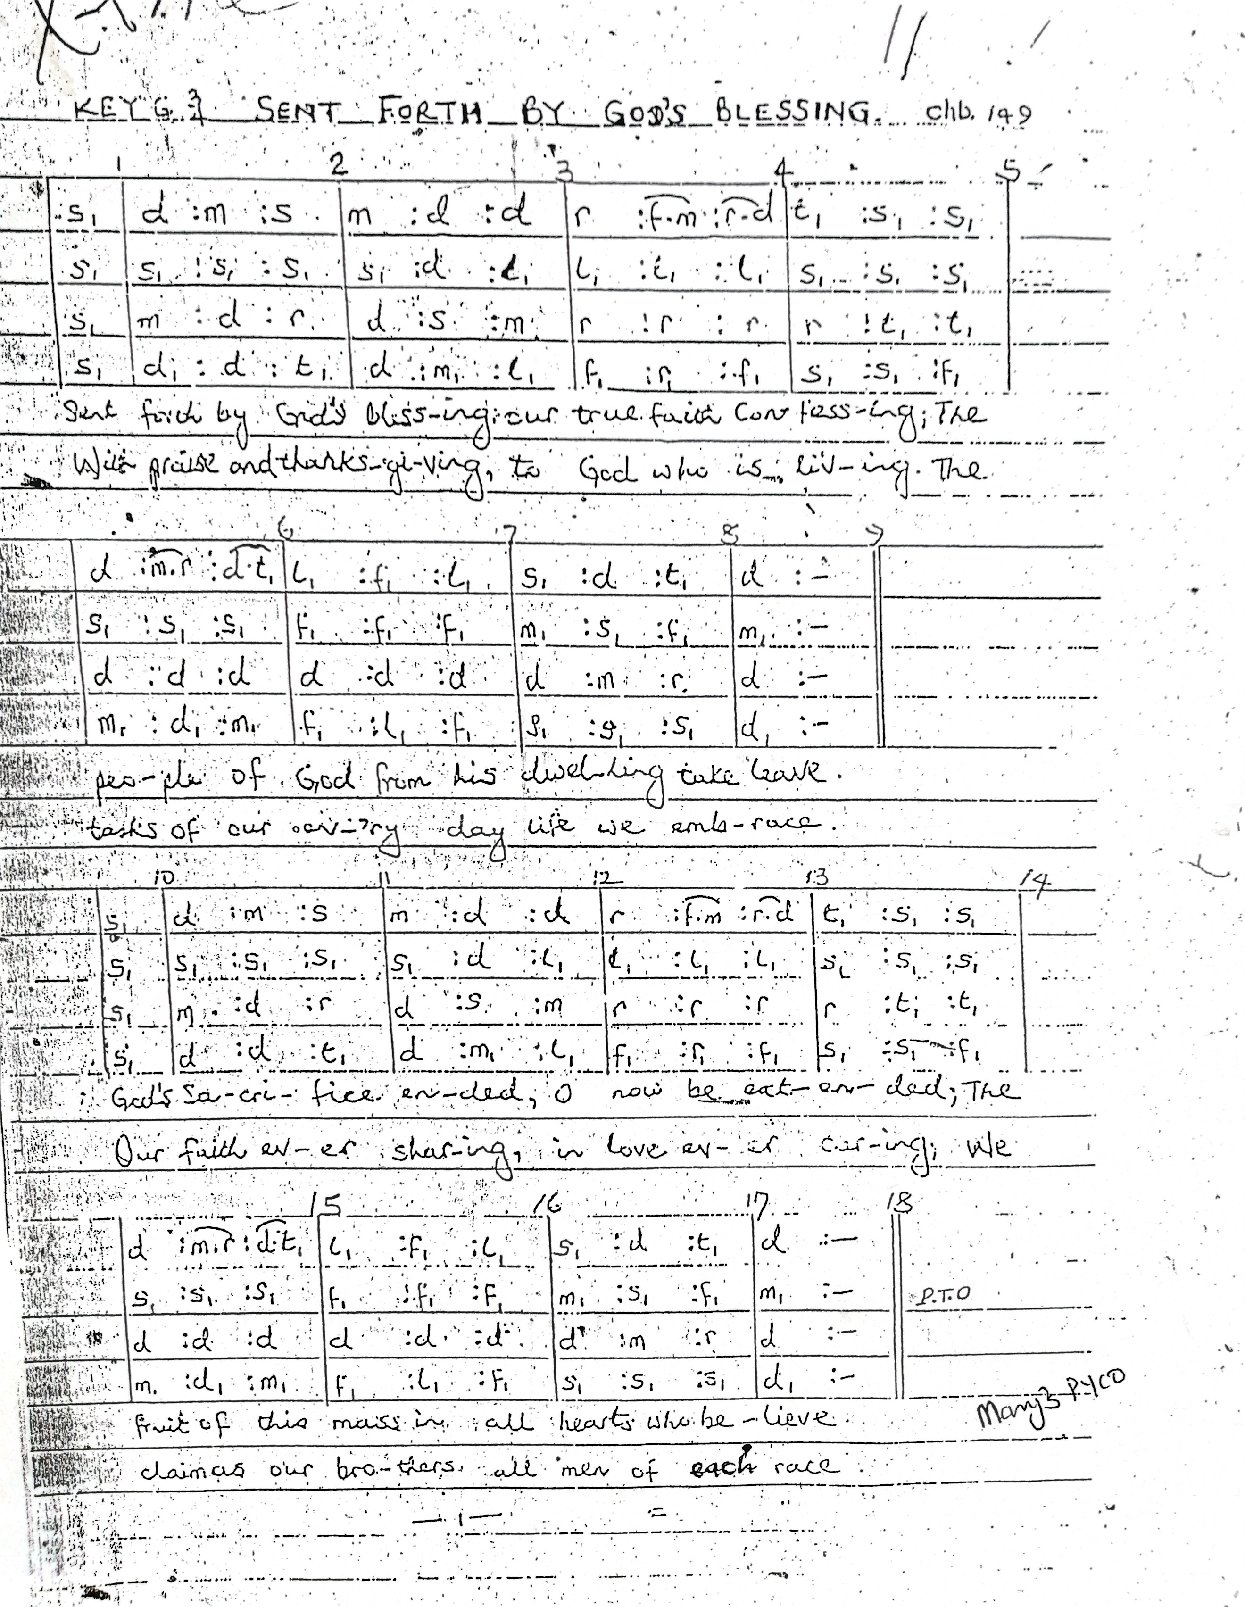 11
KEY G ¾ SENT FORTH BY GOD'S BLESSING. Chb. 149
1 2 3 4 5
.s₁ | d :m :s | m :d :d | r :f.m :r.d | t₁ :s₁ :s₁
s₁ | s₁ :s₁ :s₁ | s₁ :d :l₁ | l₁ :l₁ :l₁ | s₁ :s₁ :s₁
s₁ | m :d :r | d :s :m | r :r :r | r :t₁ :t₁
s₁ | d₁ :d :t₁ | d :m₁ :l₁ | f₁ :r₁ :f₁ | s₁ :s₁ :f₁
Sent forth by God's bless-ing; our true faith Con fess-ing; The
With praise and thanks-gi-ving, to God who is liv-ing. The
6 7 8 9
d :m.r :d.t₁ | l₁ :f₁ :l₁ | s₁ :d :t₁ | d :-
s₁ :s₁ :s₁ | f₁ :f₁ :f₁ | m₁ :s₁ :f₁ | m₁ :-
d :d :d | d :d :d | d :m :r | d :-
m₁ :d₁ :m₁ | f₁ :l₁ :f₁ | s₁ :s₁ :s₁ | d₁ :-
peo-ple of God from his dwel-ling take leave.
tasks of our day life we emb-race.
10 11 12 13 14
s₁ | d :m :s | m :d :d | r :f.m :r.d | t₁ :s₁ :s₁
s₁ | s₁ :s₁ :s₁ | s₁ :d :l₁ | l₁ :l₁ :l₁ | s₁ :s₁ :s₁
s₁ | m :d :r | d :s :m | r :r :r | r :t₁ :t₁
s₁ | d :d :t₁ | d :m₁ :l₁ | f₁ :r₁ :f₁ | s₁ :s₁ :f₁
God's Sa-cri-fice en-ded; O now be ext-en-ded; The
Our faith ev-er shar-ing, in love ev-er car-ing; We
15 16 17 18
d :m.r :d.t₁ | l₁ :f₁ :l₁ | s₁ :d :t₁ | d :-
s₁ :s₁ :s₁ | f₁ :f₁ :f₁ | m₁ :s₁ :f₁ | m₁ :- P.T.O
d :d :d | d :d :d | d :m :r | d :-
m₁ :d₁ :m₁ | f₁ :l₁ :f₁ | s₁ :s₁ :s₁ | d₁ :-
fruit of this mass in all hearts who be-lieve
claim as our bro-thers all men of each race.